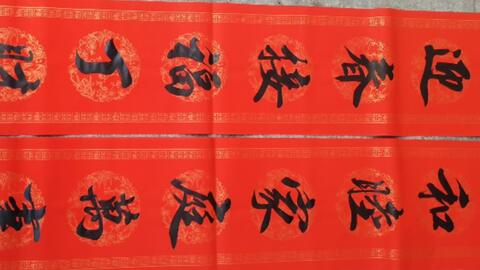 迎春接福丁財
和睦家庭萬事